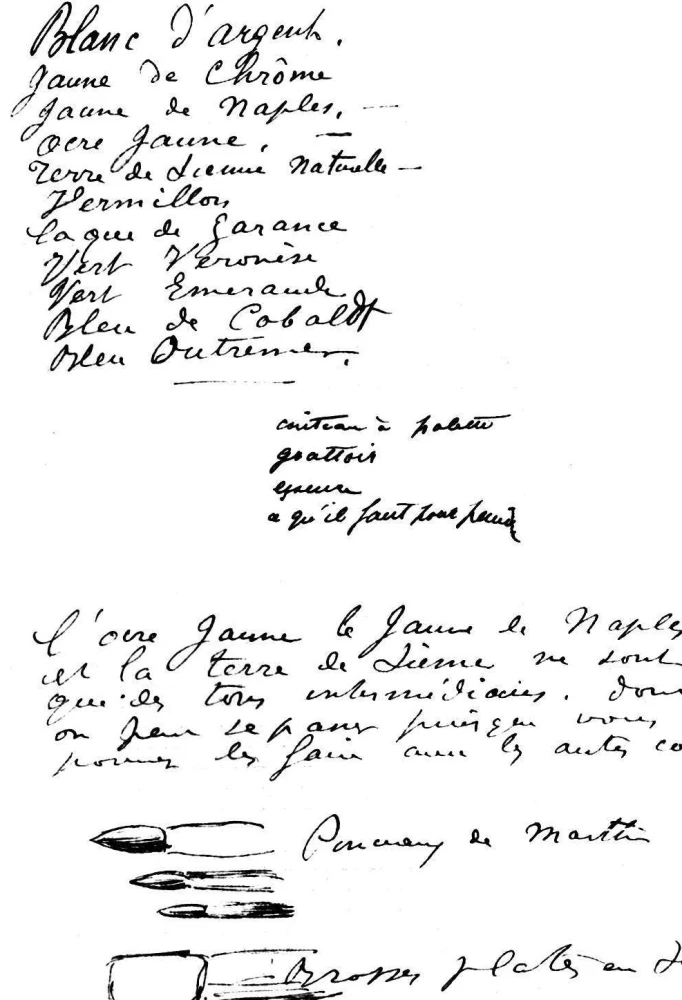 Blanc d'argent.
Jaune de Chrôme
Jaune de Naples. —
Ocre Jaune. —
Terre de Sienne Naturelle —
Vermillon
Laque de Garance
Vert Veronèse
Vert Emeraude
Bleu de Cobaldt
Bleu Outremer.
couteau à palette
grattoir
essence
ce qu'il faut pour peindre
L'ocre Jaune le Jaune de Naples
et la terre de Sienne ne sont
que des tons intermédiaires. dont
on peut se passer puisque vous
pouvez les faire avec les autres co
Pinceaux de Marttre
Brosses plates en